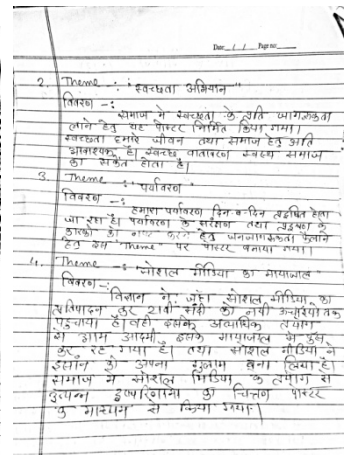 Date: / / Page no:
2. Theme -: "स्वच्छता अभियान"
विवरण -:
समाज में स्वच्छता के प्रति जागरूकता
लाने हेतु यह पोस्टर निर्मित किया गया।
स्वच्छता हमारे जीवन तथा समाज हेतु अति
आवश्यक है। स्वच्छ वातावरण स्वस्थ समाज
का संकेत होता है।
3. Theme -: "पर्यावरण"
विवरण -:
हमारा पर्यावरण दिन-ब-दिन प्रदूषित होता
जा रहा है। पर्यावरण के संरक्षण तथा प्रदूषण के
कारकों को नष्ट करने हेतु जनजागरूकता फैलाने
हेतु इस "Theme" पर पोस्टर बनाया गया।
4. Theme -: "सोशल मीडिया का मायाजाल
विवरण -:
विज्ञान ने जहाँ सोशल मीडिया का
प्रतिपादन कर 21वीं सदी को नयी ऊचाईयो तक
पहुंचाया है। वही इसके अत्याधिक प्रयोग
से आम आदमी इसके मायाजाल में
कर रह गया है। तथा सोशल मीडिया ने
इंसान को अपना गुलाम बना लिया है।
समाज में सोशल मिडिया के प्रयोग से
उत्पन्न दुष्परिणामों का चित्रण पोस्टर
के माध्यम से किया गया।